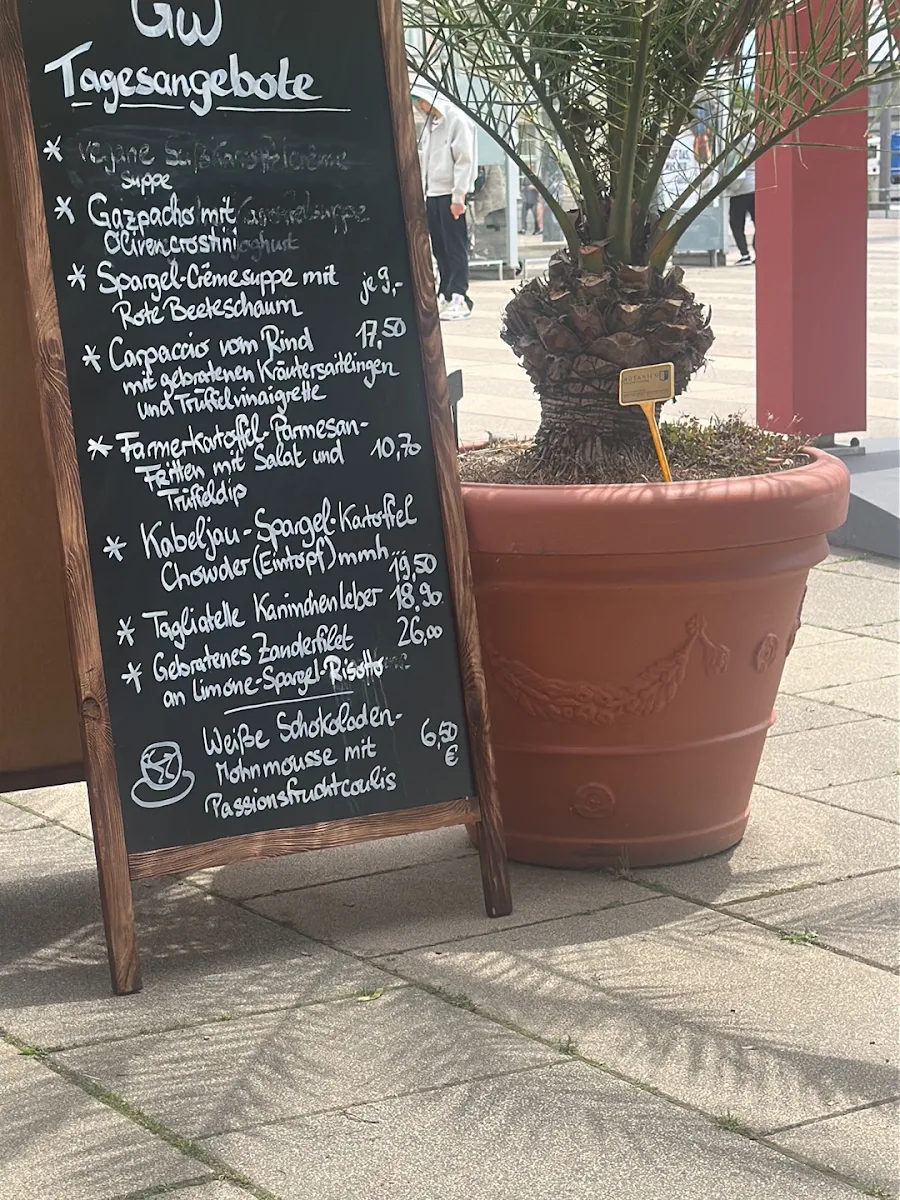 GW
Tagesangebote
* vegane Süßkartoffelcrème
suppe
* Gazpacho mit
Olivencrostini
* Spargel-Crêmesuppe mit
Rote Beeteschaum je 9,-
* Carpaccio vom Rind 17,50
mit gebratenen Kräutersaitlingen
und Trüffelvinaigrette
* Farmerkartoffel-Parmesan-
Fritten mit Salat und 10,70
Trüffeldip
* Kabeljau-Spargel-Kartoffel
Chowder (Eintopf) mmh...
19,50
* Tagliatelle Kaninchenleber 18,90
* Gebratenes Zanderfilet 26,00
an Limone-Spargel-Risotto
Weiße Schokoladen-
Mohnmousse mit 6,50
€
Passionsfruchtcoulis
BOTANICO